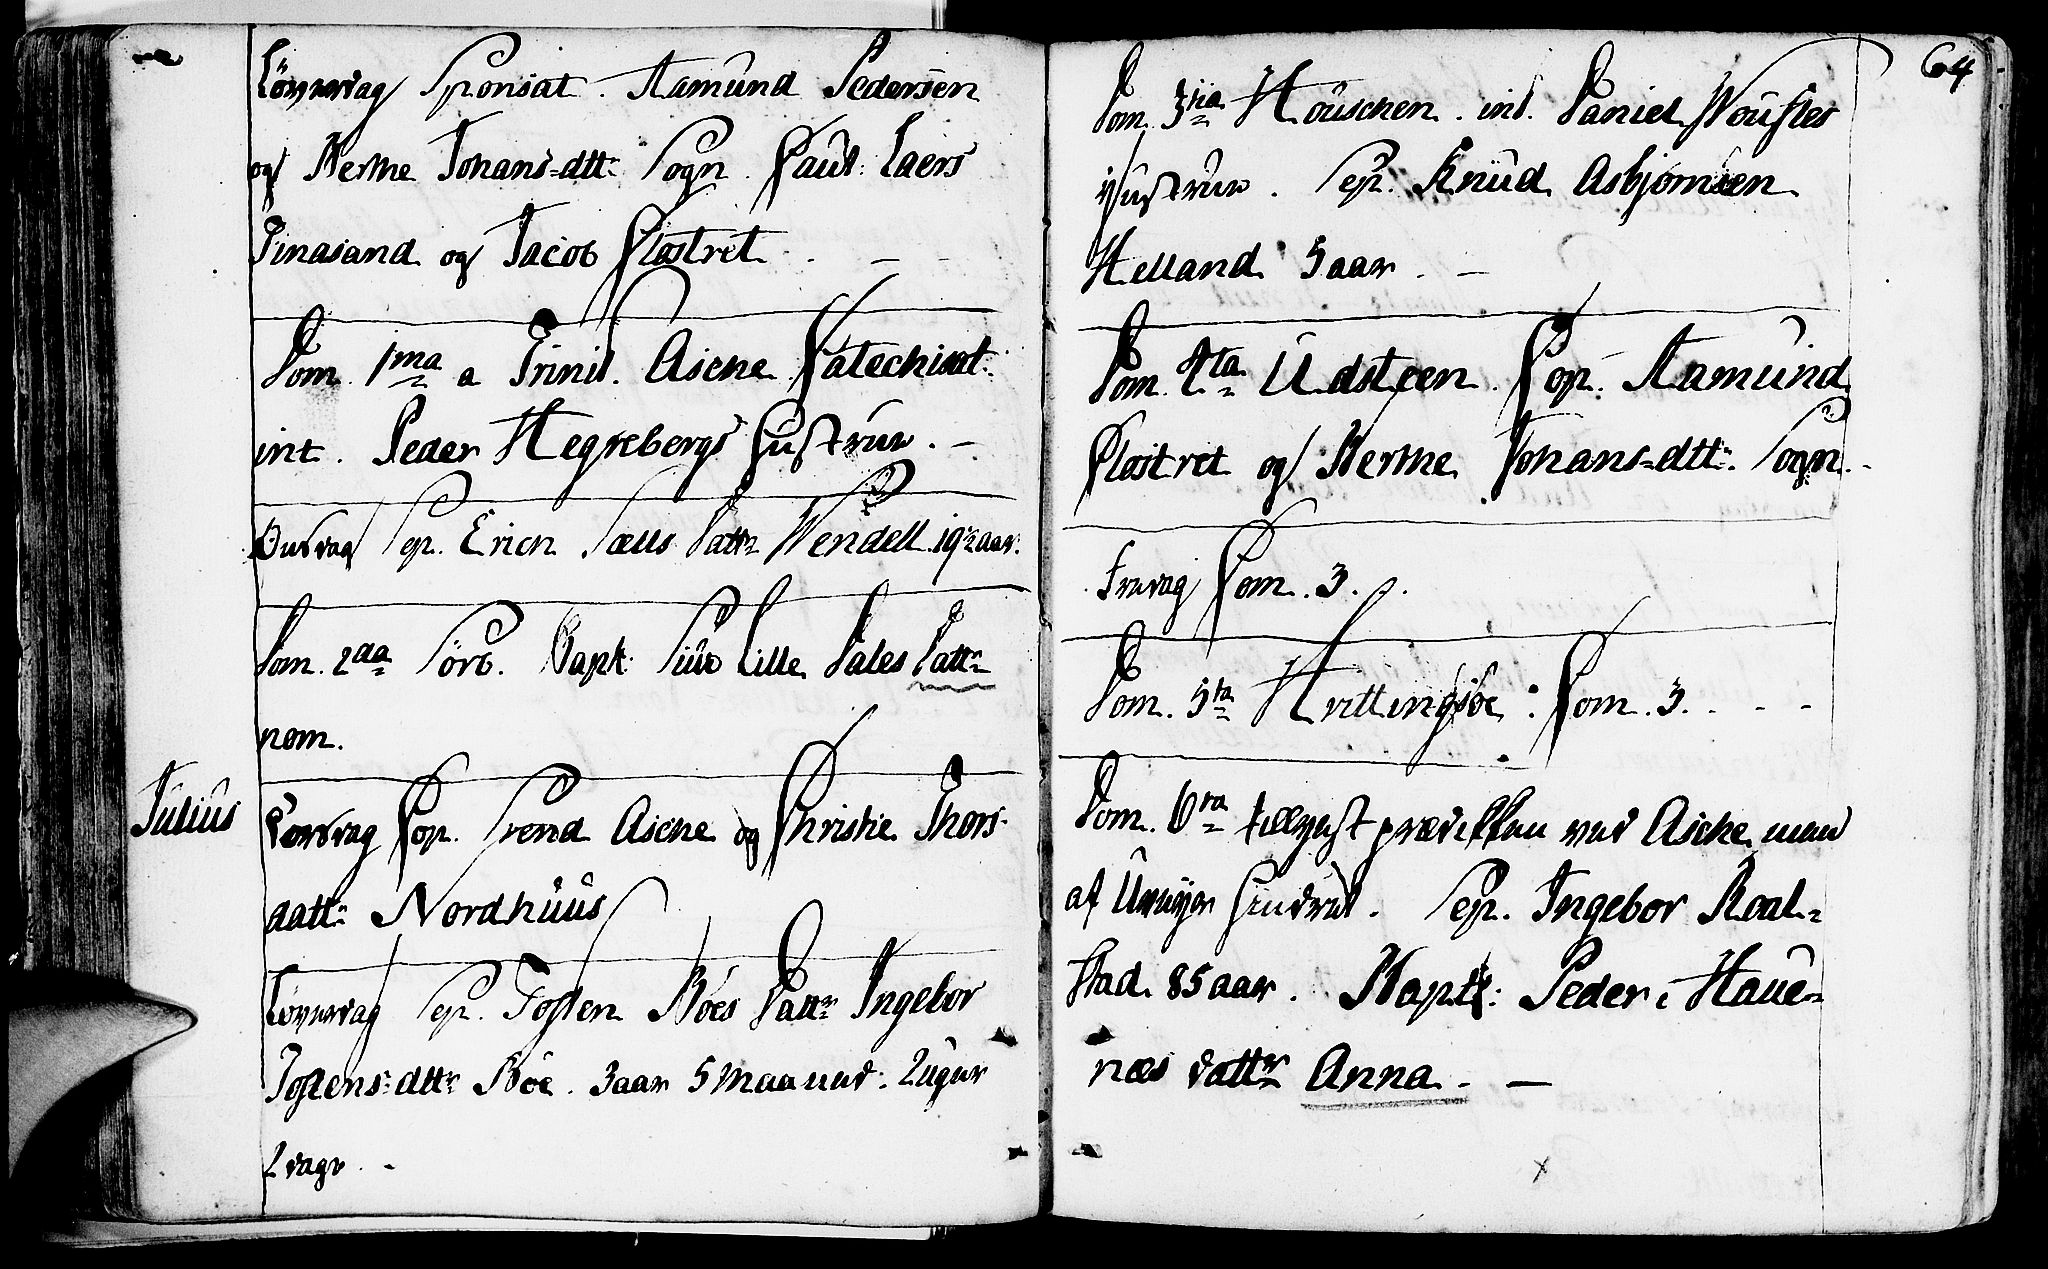 Löverdag Sponsat. Aamund Pedersen
og Merthe Johans-dtt: Sogn. Caut: Laers
Tinasand og Jacob Clostret
Dom. 1ma a Trinit. Aske Catechisat:
int. Peder Hegrebergs Hustrue.
Onsdag Sep. Erich Datt: Wendell. 19 aar:
Dom. 2da Sörb. Bapt: Lille Dales Datt:
nom.
Julius
Torsdag Cop. Svend Aske og Christie Thors-
datt: Nordhuus
Löverdag Sep. Tosten Böes Datt: Ingebor
Tostens-dtt: Böe. 3 aar 5 maaned: 2 uger
2 dage
64
Dom. 3tia Houschen. int. Daniel
Hustrue. Sep. Knud Asbjornsen
Helland 5 aar.
Dom. 4ta Udsteen. Cop. Aamund
Clostret og Merthe Johans-dtt: Sogn.
Fredag Com. 3.
Dom. 5ta Hvittingsöe: Com. 3.
Dom. 6ta prædicken ved Aske men
af Uveyer hindret. Sep. Ingebor Roal-
stad 85 aar. Bapt: Peder i Haue-
næs datt: Anna.